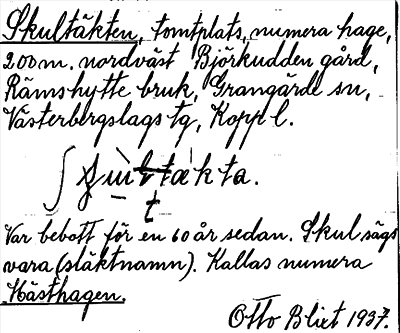 Skultäkten, tomtplats, numera hage,
200 m. nordväst Björkudden gård,
Rämshytte bruk, Grangärde sn,
Västerbergslags tg, Koppl.
Var bebott för en 60 år sedan. Skul sägs
vara (släktnamn). Kallas numera
Hästhagen.
Otto Blixt 1937.